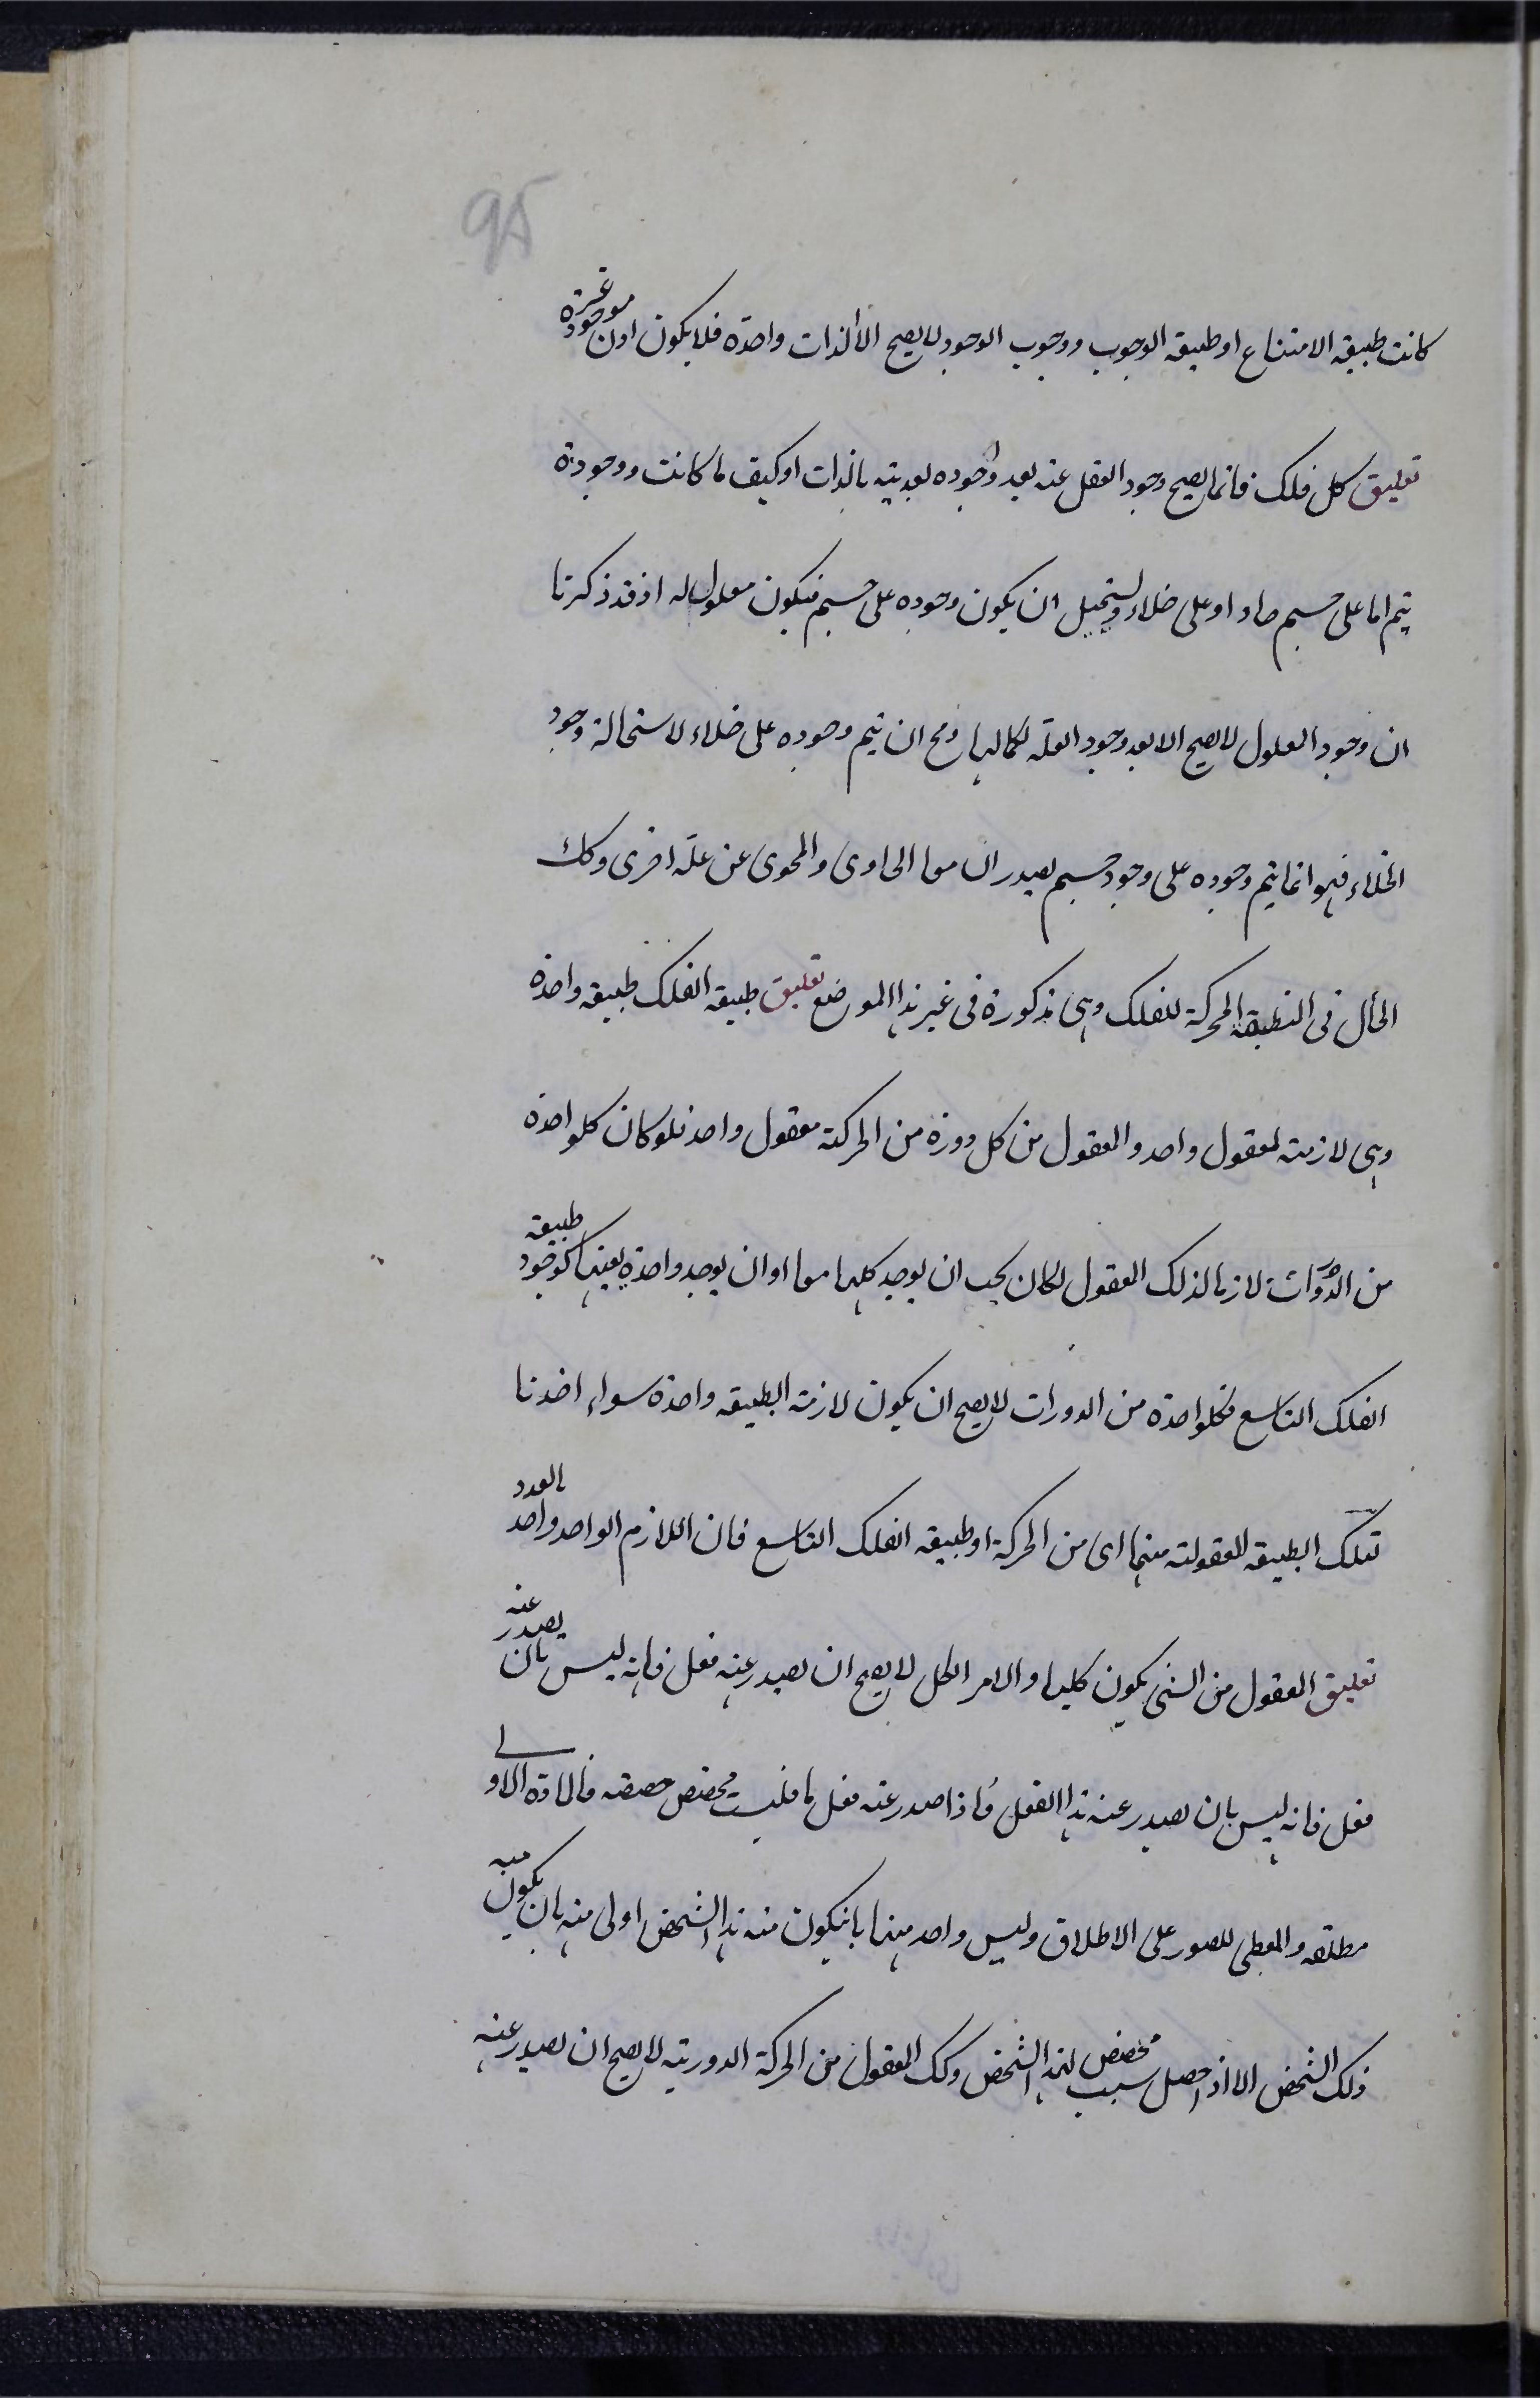 95
كانت طبيعة الامتناع او طبيعة الوجوب ووجوب الوجود لا يصح الا لذات واحدة فلا يكون اذن موجودة غيره
تعليق كل فلك فانما يصح وجود الفعل عنه بعد وجوده بعدية بالذات او كيف ما كانت ووجوده
يتم اما على جسم حاو او على خلاء ويستحيل ان يكون وجوده على جسم فيكون معلولا له اذ قد ذكرنا
ان وجود المعلول لا يصح الا بعد وجود العلة بكمالها ومح ان يتم وجوده على خلاء لاستحالة وجود
الخلاء فهو انما يتم وجوده على وجود جسم يصدران معا الحاوى والمحوى عن علة اخرى وكك
الحال فى الطبيعة المحركة للفلك وهى مذكورة فى غير هذا الموضع تعليق طبيعة الفلك طبيعة واحدة
وهى لازمة لمعقول واحد والمعقول من كل دورة من الحركة معقول واحد فلو كان كلواحدة
من الدورات لازما لذلك المعقول لكان يجب ان يوجد كلها معا او ان يوجد واحدة بعينها كوجود طبيعة
الفلك التاسع فكلواحدة من الدورات لا يصح ان يكون لازمة لطبيعة واحدة سواء اخذنا
تلك الطبيعة المعقولة منها اى من الحركة او طبيعة الفلك التاسع فان اللازم الواحد واحد بالعدد
تعليق المعقول من الشئ يكون كليا والامر الكلى لا يصح ان يصدر عنه فعل فانه ليس بان يصدر عنه
فعل فانه ليس بان يصدر عنه هذا الفعل واذا صدر عنه فعل ما فلسبب مخصص خصصه فالمادة الاولى
مطلقة والمعطى للصور على الاطلاق وليس واحد منهما بانيكون منه هذا الشخص اولى منه بان يكون منه
ذلك الشخص الا اذا حصل سبب مخصص لهذا الشخص وكك المعقول من الحركة الدورية لا يصح ان يصدر عنه